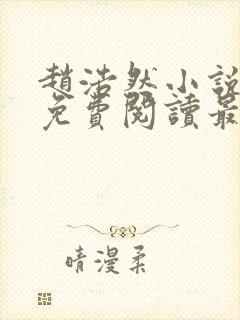 趙浩然小說
免費閱讀最
晴漫柔